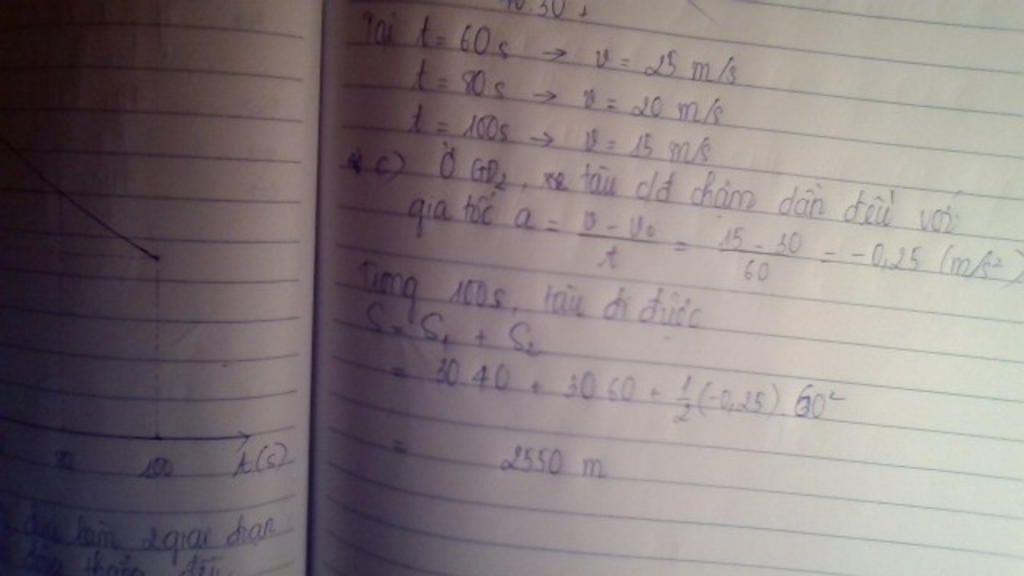 Tại t = 60 s → v = 25 m/s
t = 80 s → v = 20 m/s
t = 100 s → v = 15 m/s
c) Ở GĐ2, tàu c/đ chậm dần đều với
gia tốc a = (v - v0)/t = (15 - 30)/60 = -0,25 (m/s²)
Trong 100s, tàu đi được
S = S1 + S2
= 30.40 + 30.60 + 1/2 (-0,25).60²
= 2550 m
100 t(s)
làm 2 giai đoạn
thẳng đều